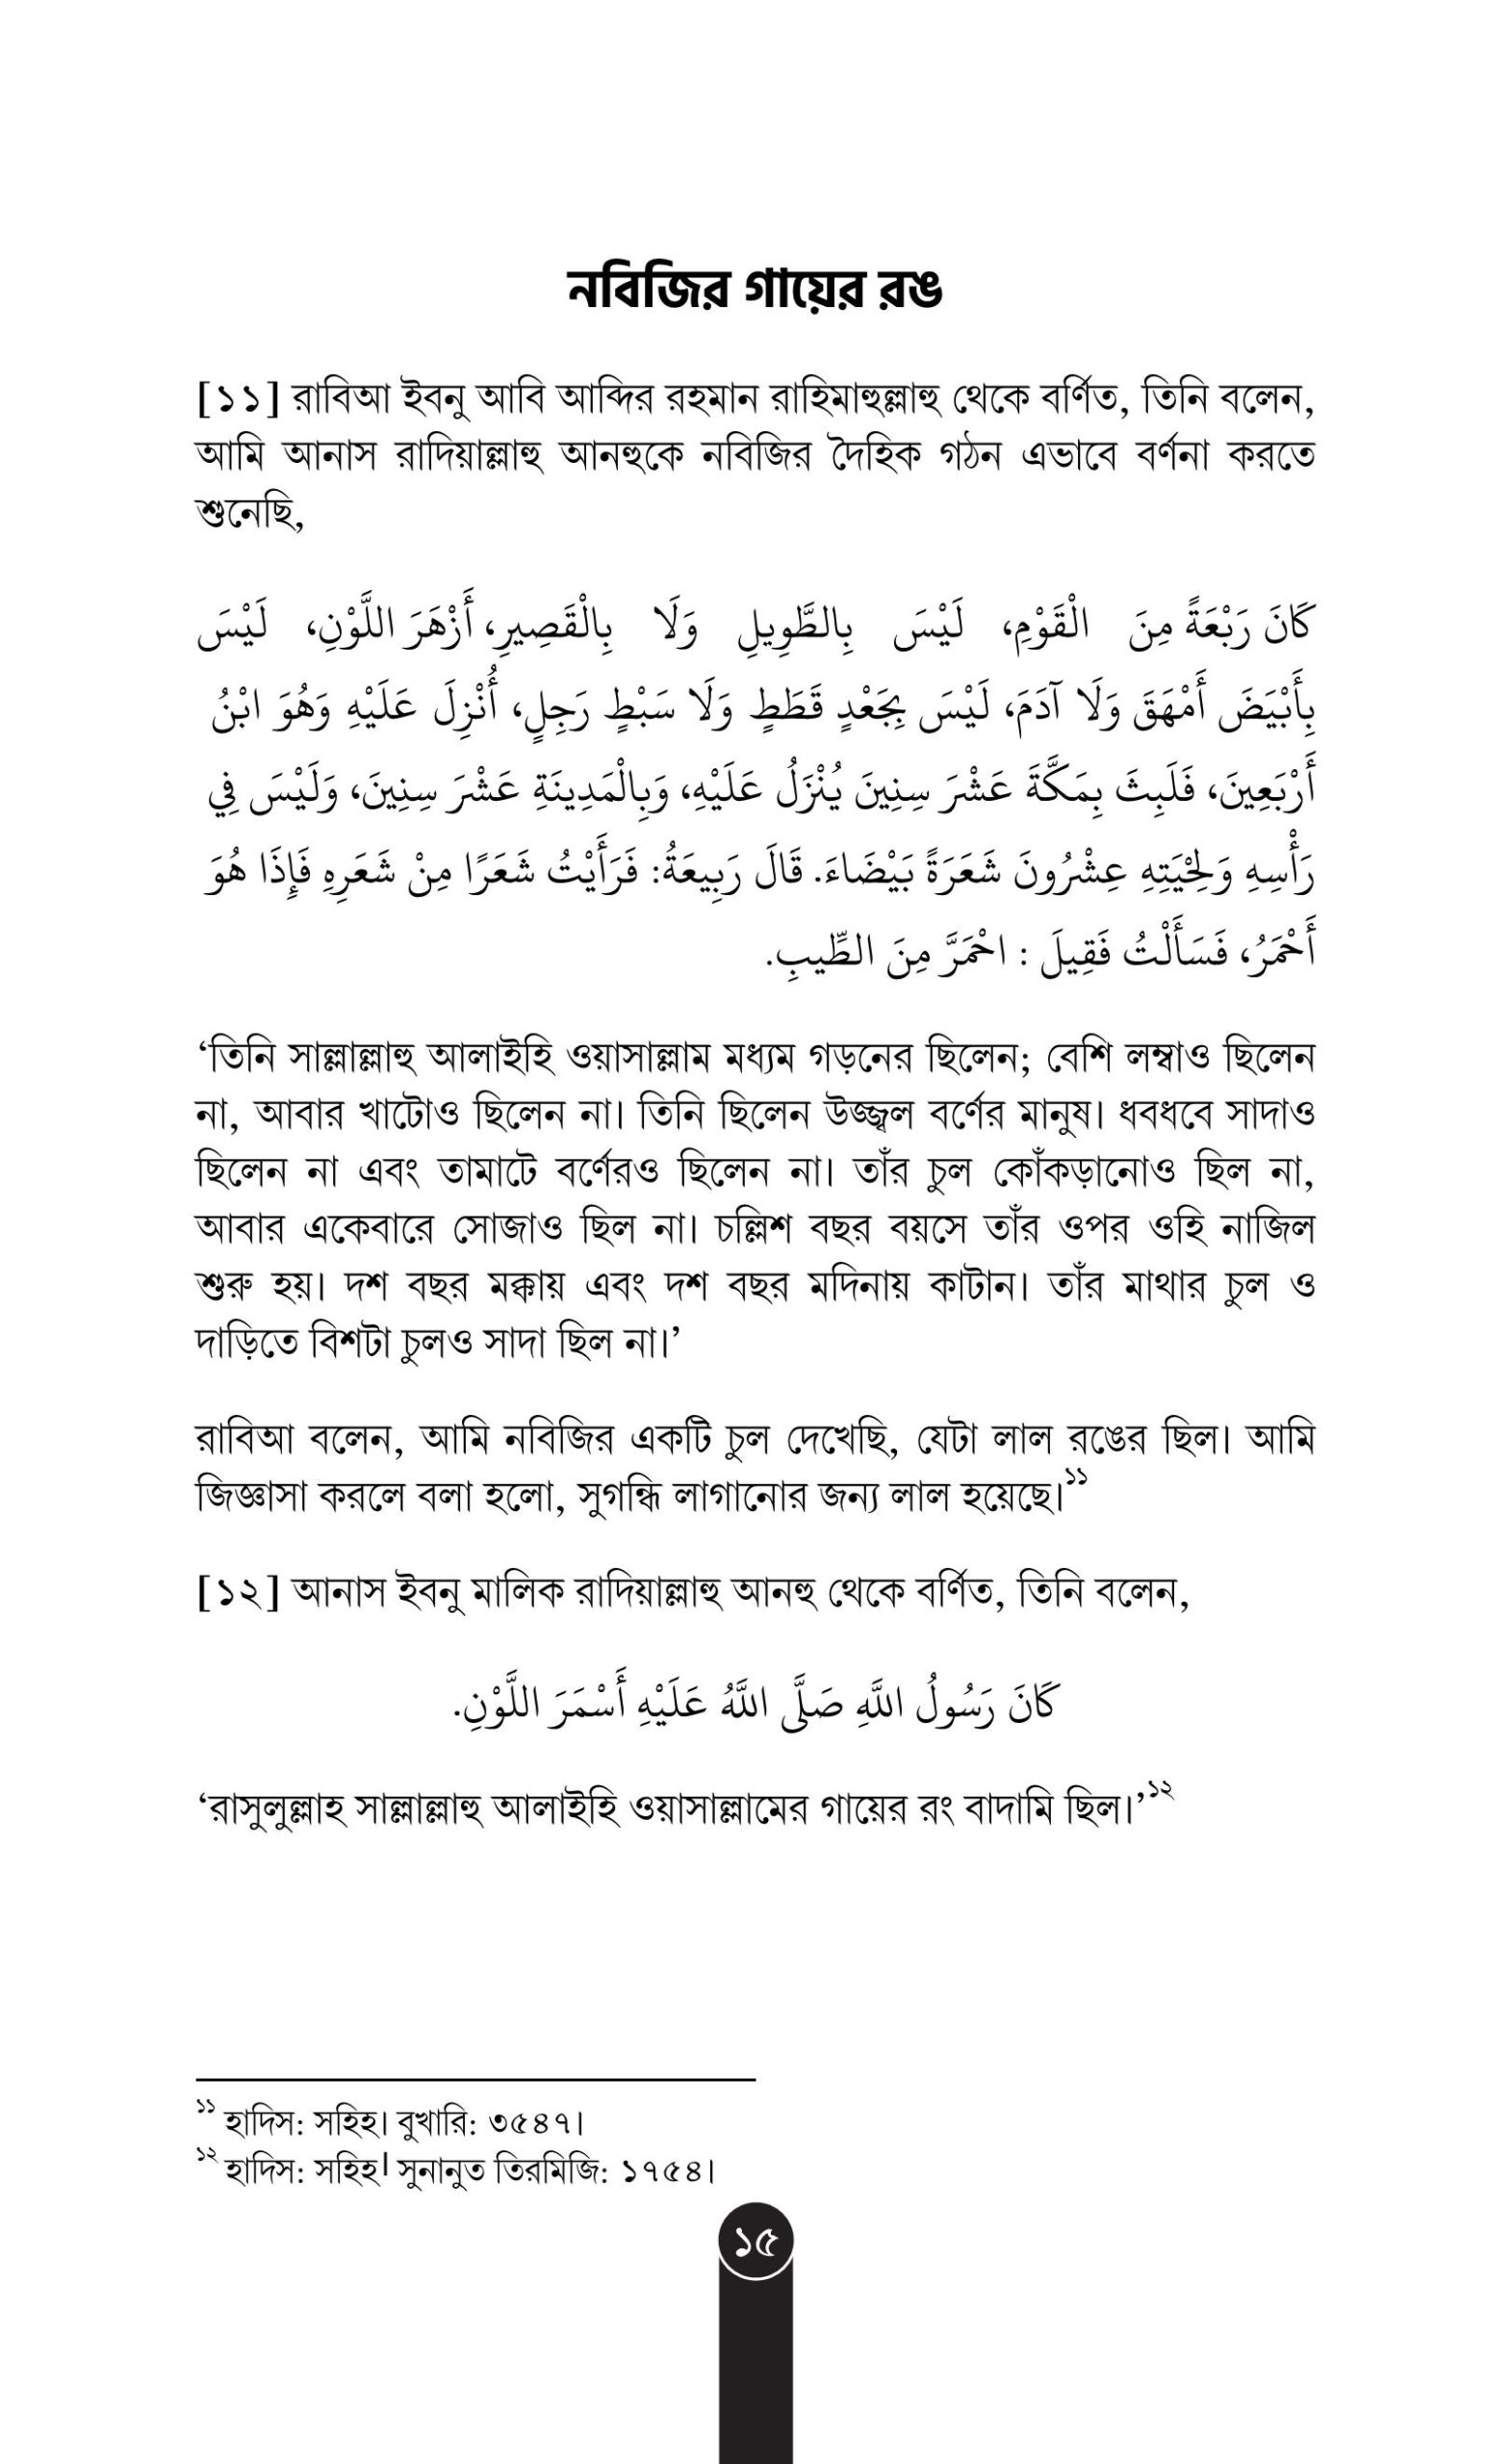 নবিজির গায়ের রঙ
[১১] রাবিআ ইবনু আবি আব্দির রহমান রাহিমাহুল্লাহু থেকে বর্ণিত, তিনি বলেন,
আমি আনাস রাদিয়াল্লাহু আনহুকে নবিজির দৈহিক গঠন এভাবে বর্ণনা করতে
শুনেছি,
كَانَ رَبْعَةً مِنَ الْقَوْمِ، لَيْسَ بِالطَّوِيلِ وَلَا بِالْقَصِيرِ، أَزْهَرَ اللَّوْنِ، لَيْسَ
بِأَبْيَضَ أَمْهَقَ وَلَا آدَمَ، لَيْسَ بِجَعْدٍ قَطَطٍ وَلَا سَبْطٍ رَجِلٍ، أُنْزِلَ عَلَيْهِ وَهُوَ ابْنُ
أَرْبَعِينَ، فَلَبِثَ بِمَكَّةَ عَشْرَ سِنِينَ يُنْزَلُ عَلَيْهِ، وَبِالْمَدِينَةِ عَشْرَ سِنِينَ، وَلَيْسَ فِي
رَأْسِهِ وَلِحْيَتِهِ عِشْرُونَ شَعَرَةً بَيْضَاءَ. قَالَ رَبِيعَةُ: فَرَأَيْتُ شَعَرًا مِنْ شَعَرِهِ فَإِذَا هُوَ
أَحْمَرُ، فَسَأَلْتُ فَقِيلَ : احْمَرَّ مِنَ الطِّيبِ.
‘তিনি সাল্লাল্লাহু আলাইহি ওয়াসাল্লাম মধ্যম গড়নের ছিলেন; বেশি লম্বাও ছিলেন
না, আবার খাটোও ছিলেন না। তিনি ছিলেন উজ্জ্বল বর্ণের মানুষ। ধবধবে সাদাও
ছিলেন না এবং তামাটে বর্ণেরও ছিলেন না। তাঁর চুল কোঁকড়ানোও ছিল না,
আবার একেবারে সোজাও ছিল না। চল্লিশ বছর বয়সে তাঁর ওপর ওহি নাজিল
শুরু হয়। দশ বছর মক্কায় এবং দশ বছর মদিনায় কাটান। তাঁর মাথার চুল ও
দাড়িতে বিশটা চুলও সাদা ছিল না।’
রাবিআ বলেন, আমি নবিজির একটি চুল দেখেছি, যেটা লাল রঙের ছিল। আমি
জিজ্ঞাসা করলে বলা হলো, সুগন্ধি লাগানোর জন্য লাল হয়েছে।১১
[১২] আনাস ইবনু মালিক রাদিয়াল্লাহু আনহু থেকে বর্ণিত, তিনি বলেন,
كَانَ رَسُولُ اللَّهِ صَلَّى اللَّهُ عَلَيْهِ أَسْمَرَ اللَّوْنِ.
‘রাসুলুল্লাহ সাল্লাল্লাহু আলাইহি ওয়াসাল্লামের গায়ের রং বাদামি ছিল।’১২
১১ হাদিস: সহিহ। বুখারি: ৩৫৪৭।
১২ হাদিস: সহিহ। সুনানুত তিরমিজি: ১৭৫৪।
১৫